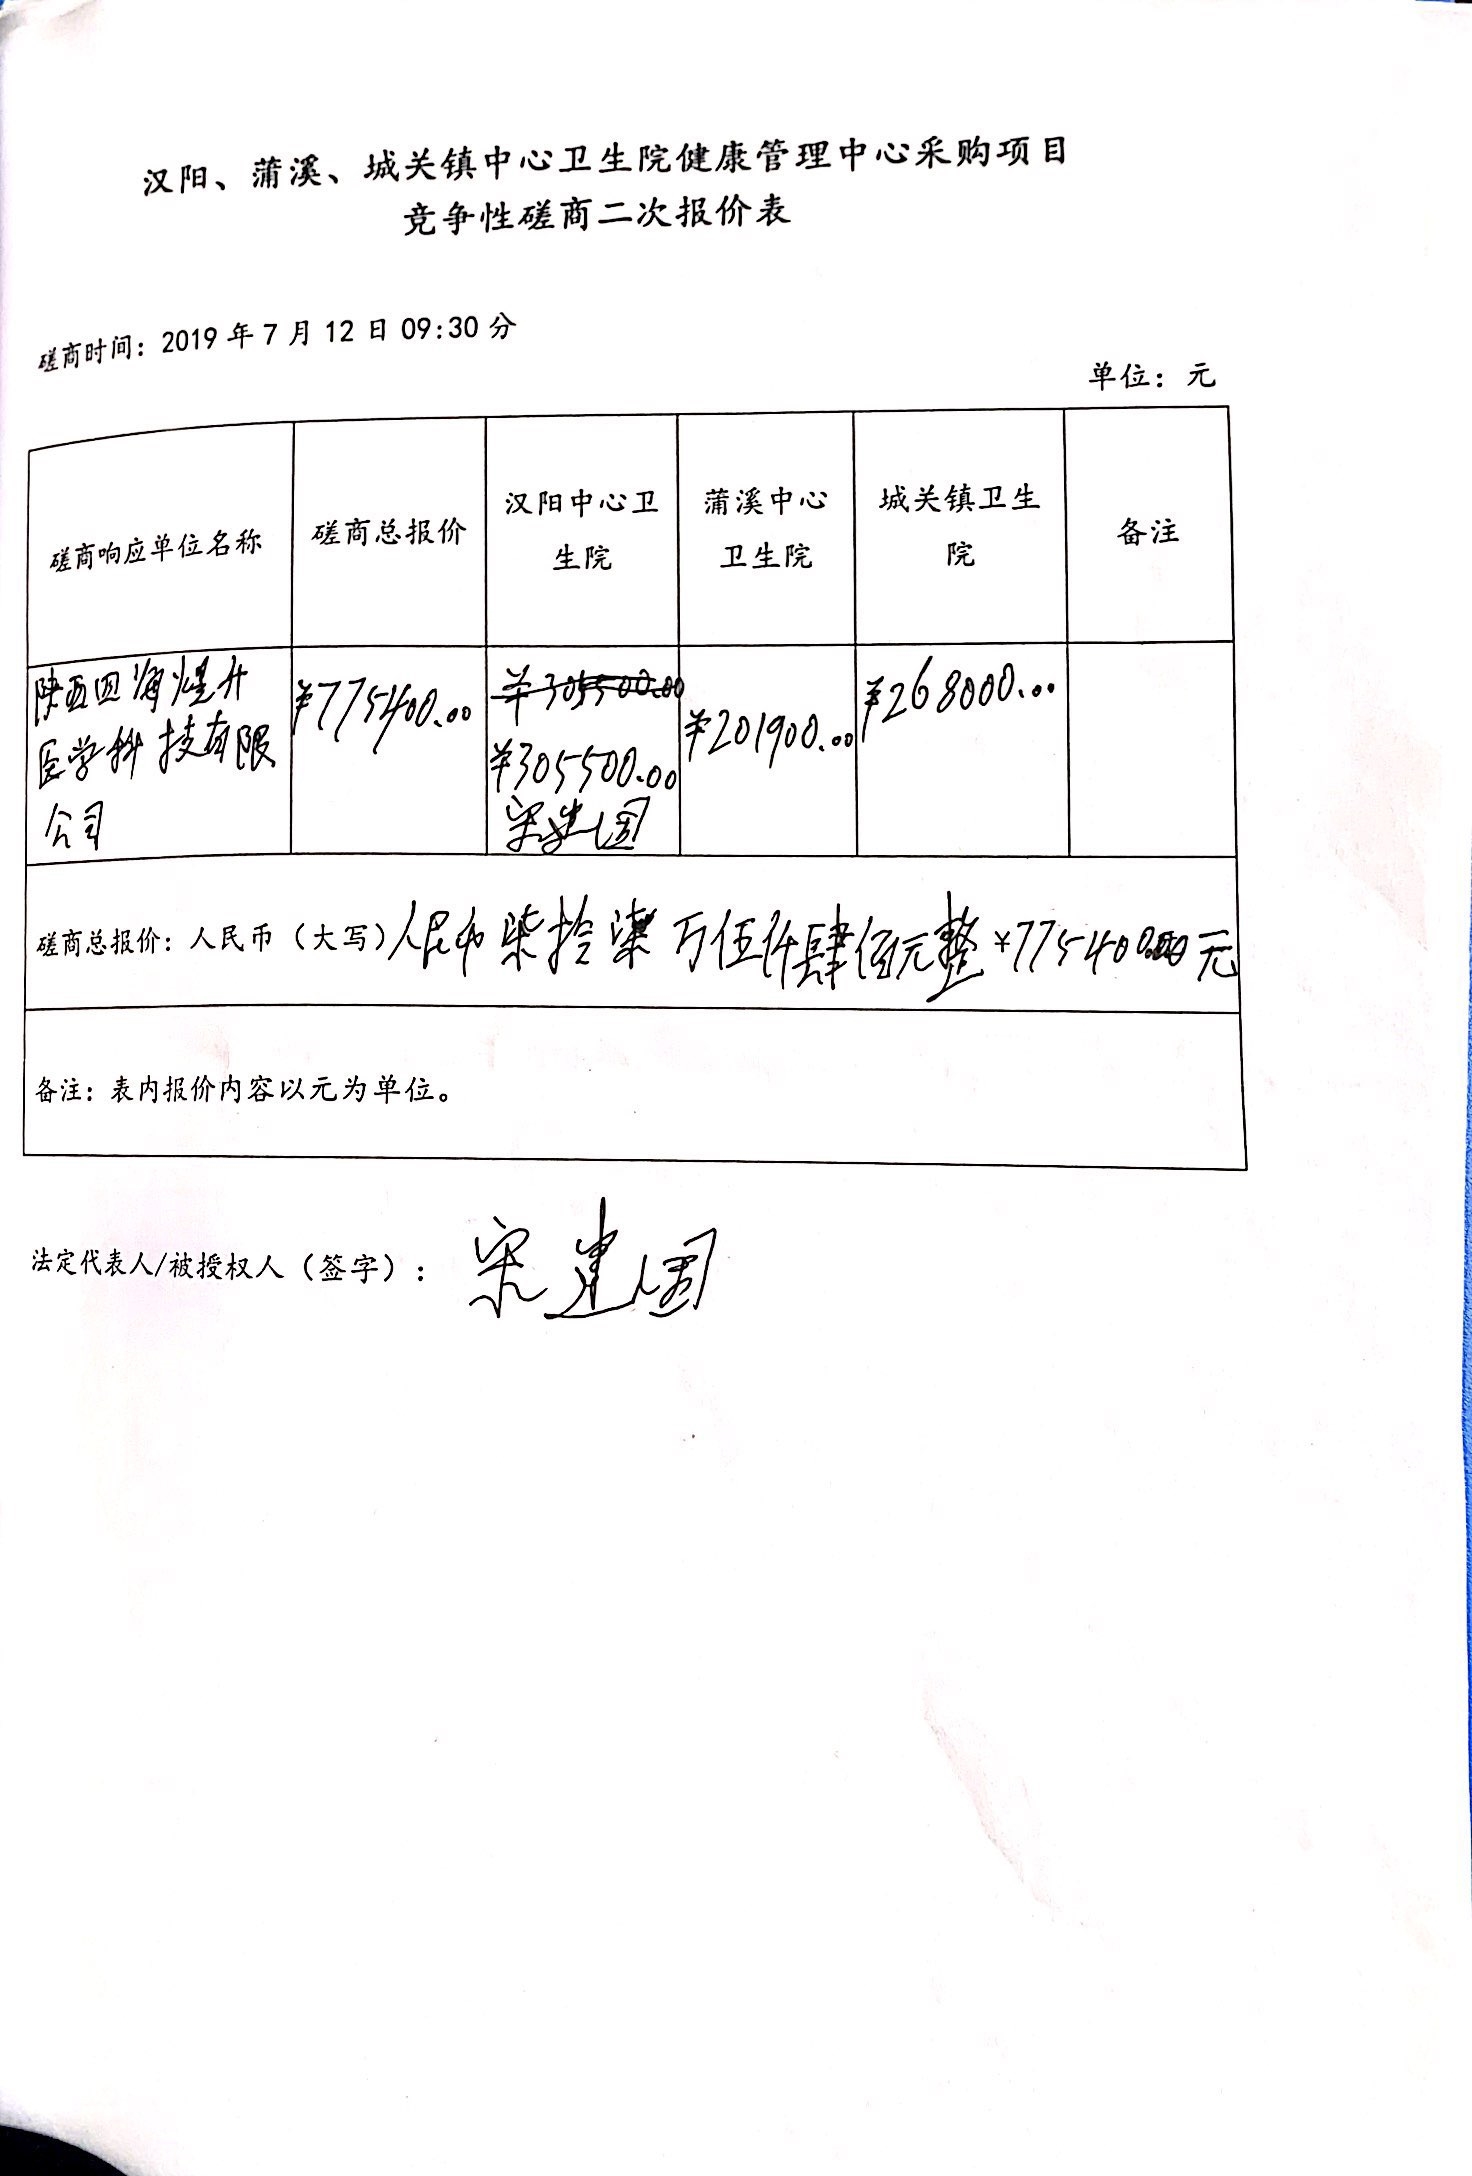 汉阳、蒲溪、城关镇中心卫生院健康管理中心采购项目
竞争性磋商二次报价表
磋商时间：2019 年 7 月 12 日 09:30 分
单位：元
磋商响应单位名称
磋商总报价
汉阳中心卫
生院
蒲溪中心
卫生院
城关镇卫生
院
备注
陕西四海煜升
医学科技有限
公司
¥775400.00
¥305500.00
¥305500.00
宋建国
¥201900.00
¥268000.00
磋商总报价：人民币（大写）人民币柒拾柒万伍仟肆佰元整 ¥775400.00元
备注：表内报价内容以元为单位。
法定代表人/被授权人（签字）：宋建国